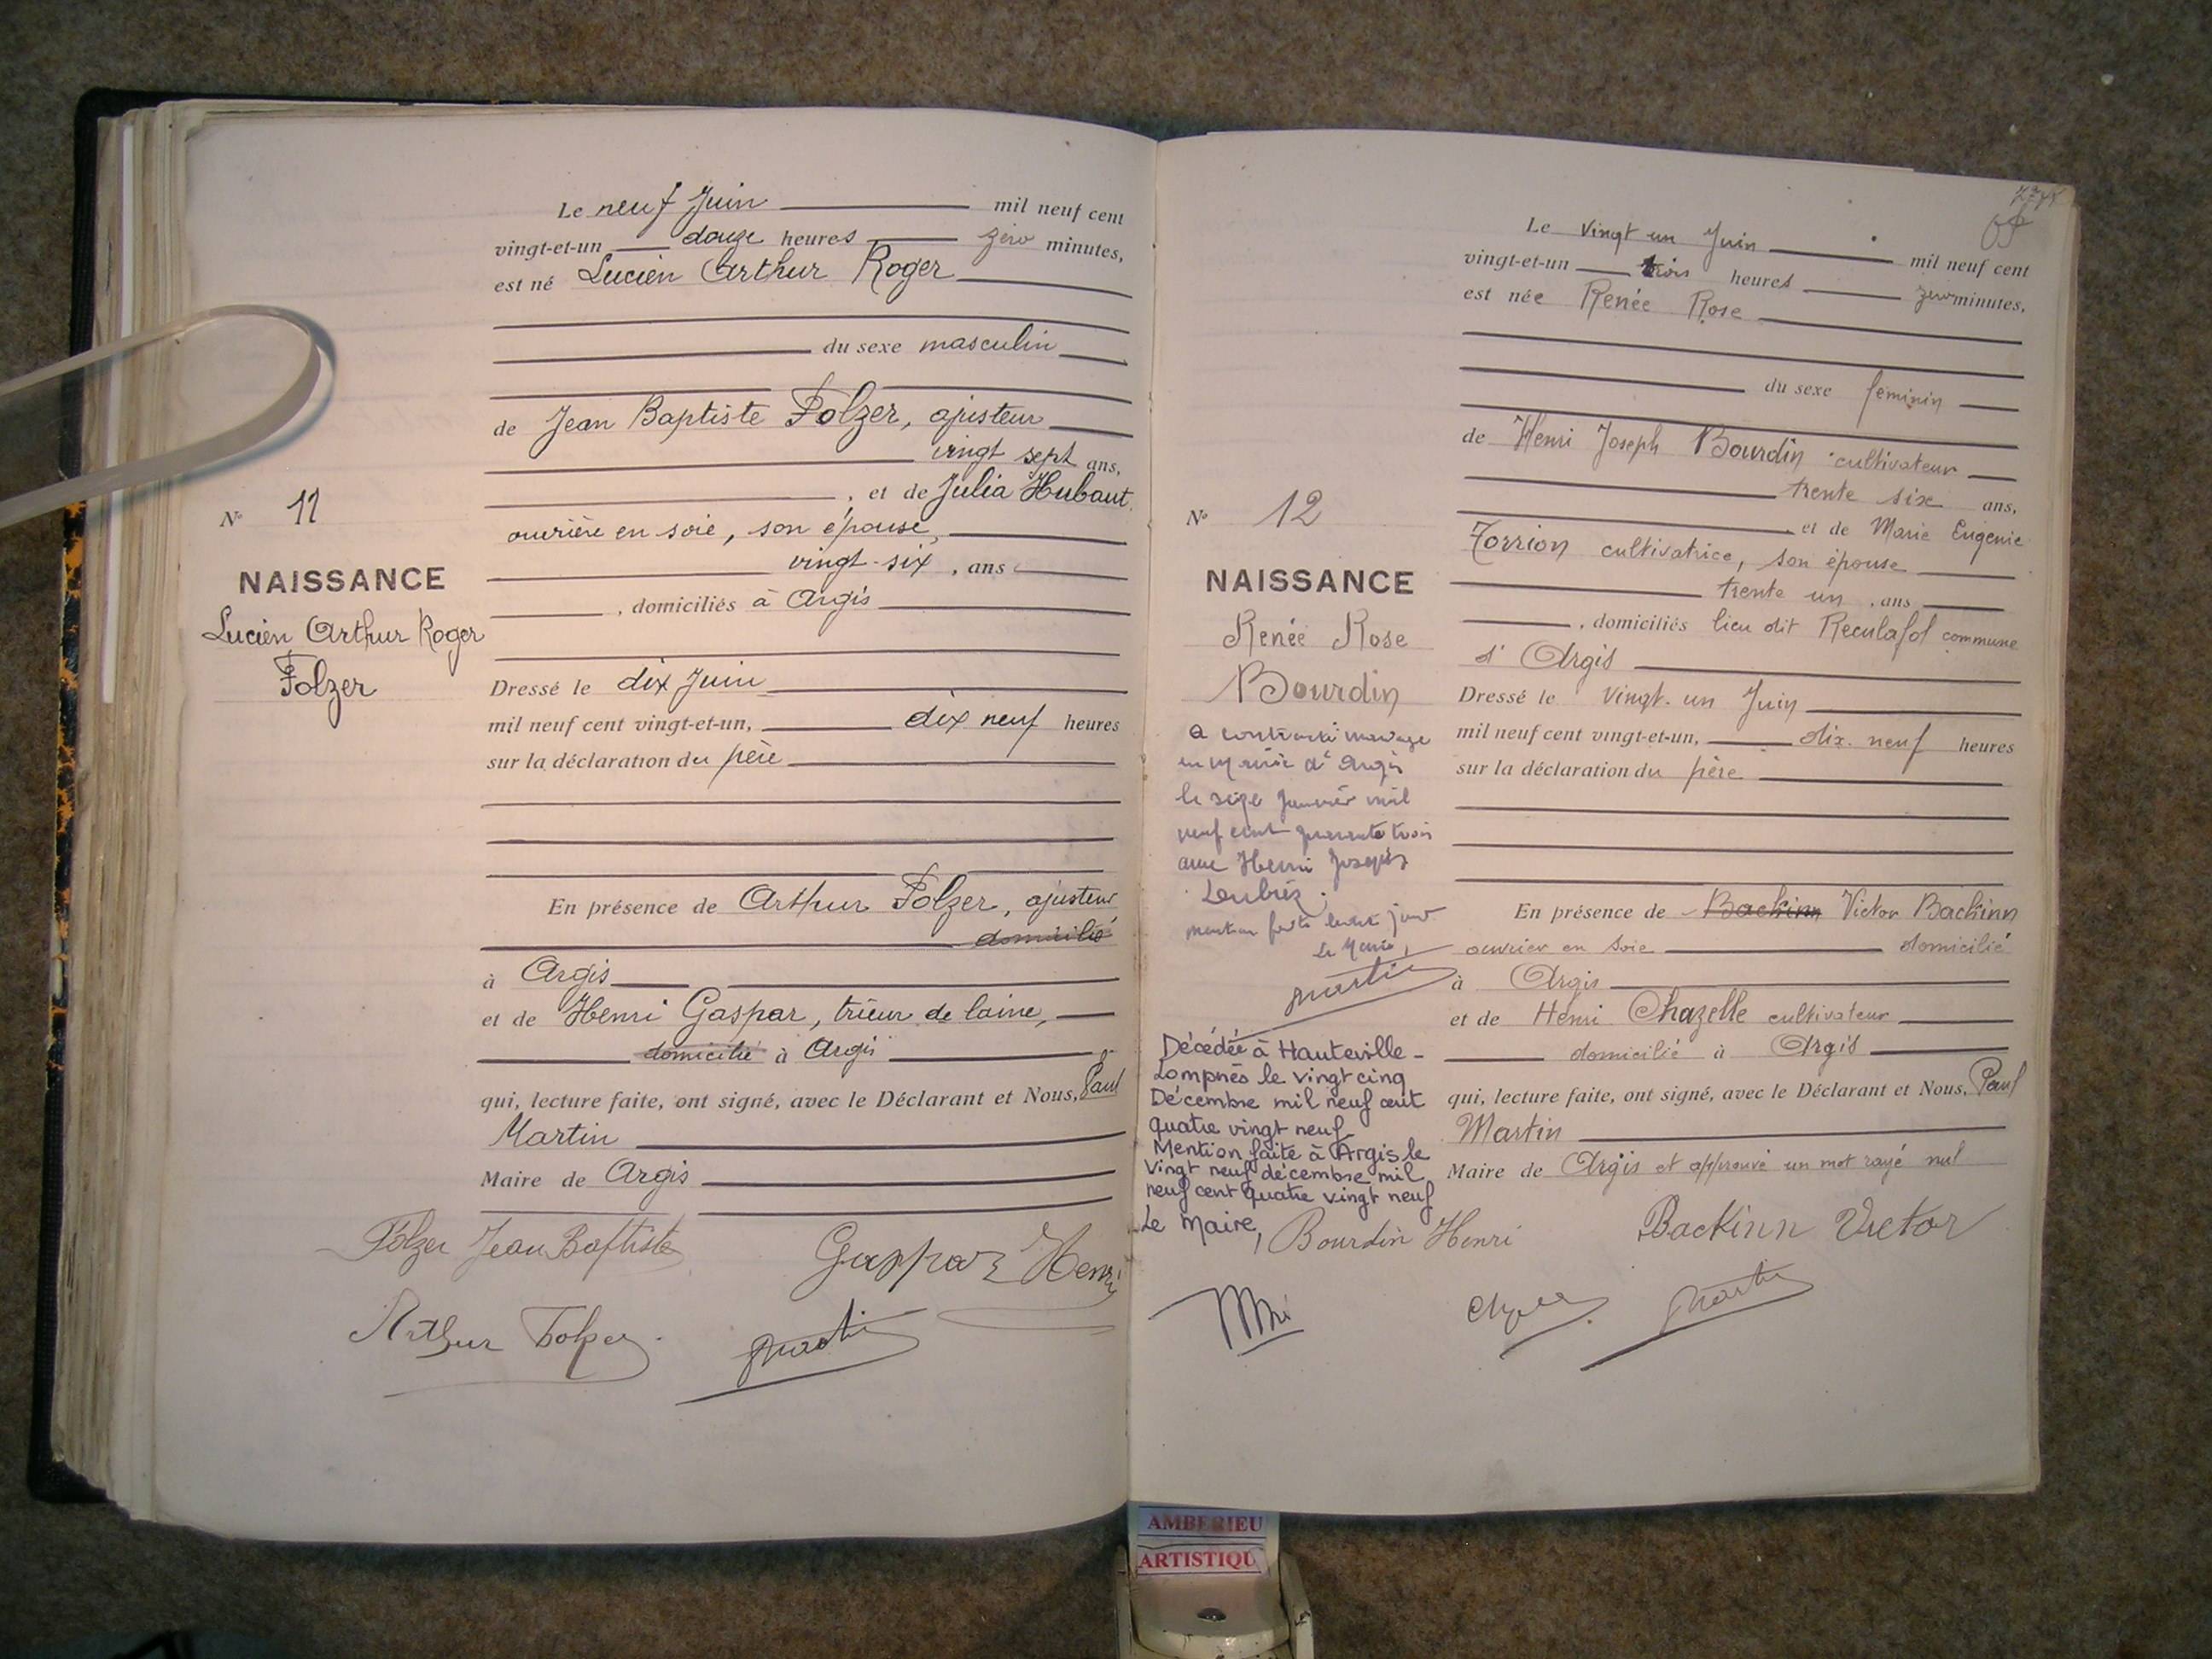 Le neuf Juin mil neuf cent
vingt-et-un douze heures zéro minutes,
est né Lucien Arthur Roger
du sexe masculin
de Jean Baptiste Folzer, ajusteur
vingt sept ans,
, et de Julia Hubaut,
ouvrière en soie, son épouse,
vingt-six, ans
, domiciliés à Argis
Dressé le dix Juin
mil neuf cent vingt-et-un, dix neuf heures
sur la déclaration du père
En présence de Arthur Folzer, ajusteur
domicilié
à Argis
et de Henri Gaspar, trieur de laine,
domicilié à Argis
qui, lecture faite, ont signé, avec le Déclarant et Nous, Paul
Martin
Maire de Argis
Folzer Jean Baptiste
Gaspar Henri
Arthur Folzer
Martin
N° 11
NAISSANCE
Lucien Arthur Roger
Folzer
Le vingt un Juin mil neuf cent
vingt-et-un trois heures zero minutes,
est née Renée Rose
du sexe feminin
de Henri Joseph Bourdin cultivateur
trente six ans,
et de Marie Eugenie
Torrion cultivatrice, son épouse
trente un, ans
, domiciliés lieu dit Reculafol commune
d'Argis
Dressé le vingt-un Juin
mil neuf cent vingt-et-un, dix-neuf heures
sur la déclaration du père
En présence de Backinn Victor Backinn
ouvrier en soie domicilié
à Argis
et de Henri Chazelle cultivateur
domicilié à Argis
qui, lecture faite, ont signé, avec le Déclarant et Nous, Paul
Martin
Maire de Argis et approuvé un mot rayé nul
Bourdin Henri
Backinn Victor
Martin
N° 12
NAISSANCE
Renée Rose
Bourdin
a contracté mariage
en Mairie d'Argis
le seize Janvier mil
neuf cent quarante trois
avec Henri Joseph
mention faite le dit jour
Le Maire,
Martin
Décédée à Hauteville-
Lompnès le vingt cinq
Décembre mil neuf cent
quatre vingt neuf
Mention faite à Argis le
vingt neuf décembre mil
neuf cent quatre vingt neuf
Le Maire,
AMBERIEU
ARTISTIQU